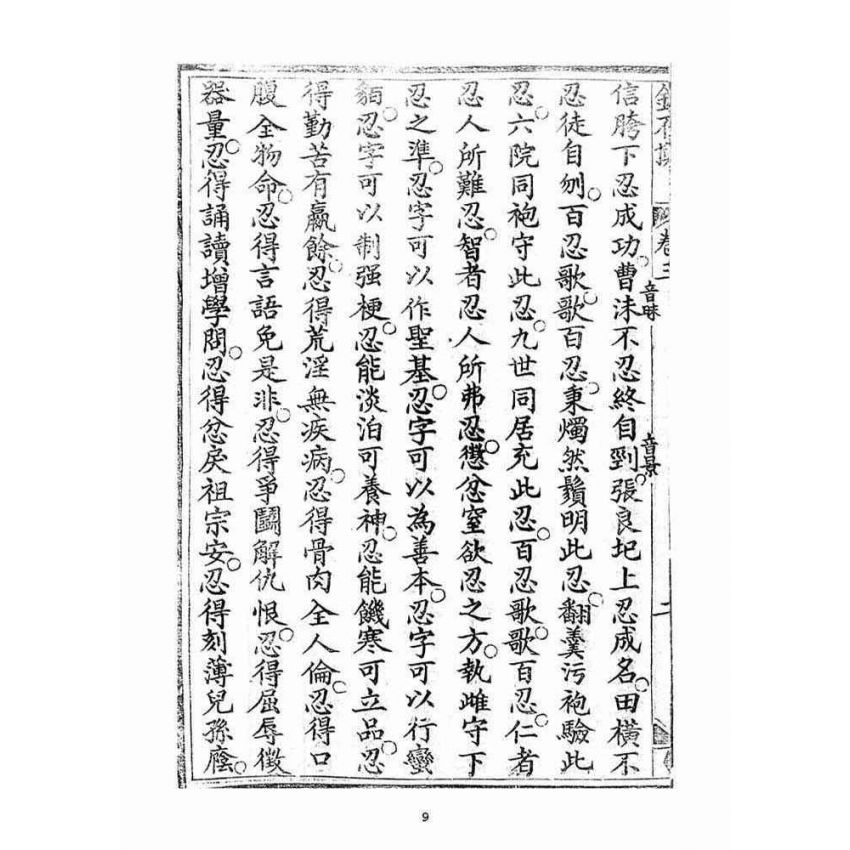 卷三
二
信胯下忍成功。曹沬音昧不忍終自剄音景。張良圯上忍成名。田橫不
忍徒自刎。百忍歌。歌百忍。秉燭然鬚明此忍。翻羹污袍驗此
忍。六院同袍守此忍。九世同居充此忍。百忍歌。歌百忍。仁者
忍人所難忍。智者忍人所弗忍。懲忿窒欲忍之方。執雌守下
忍之準。忍字可以作聖基。忍字可以為善本。忍字可以行蠻
貊。忍字可以制强梗。忍能淡泊可養神。忍能饑寒可立品。忍
得勤苦有贏餘。忍得荒淫無疾病。忍得骨肉全人倫。忍得口
腹全物命。忍得言語免是非。忍得爭鬬解仇恨。忍得屈辱徵
器量。忍得誦讀增學問。忍得忿戾祖宗安。忍得刻薄兒孫廕。
9